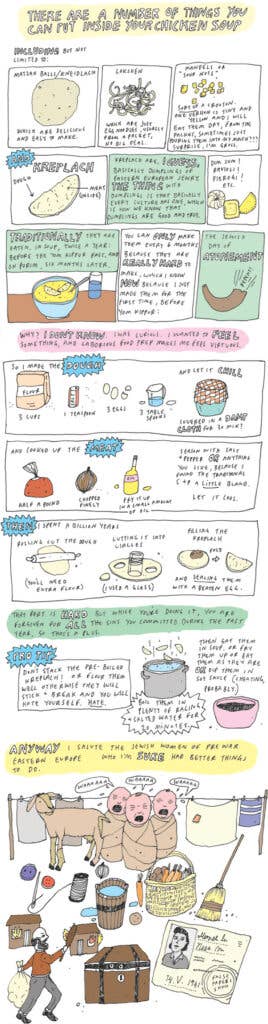 THERE ARE A NUMBER OF THINGS YOU
CAN PUT INSIDE YOUR CHICKEN SOUP
INCLUDING BUT NOT
LIMITED TO:
MATZAH BALLS/KNEIDLACH
WHICH ARE DELICIOUS
AND EASY TO MAKE.
LOKSHEN
WHICH ARE JUST
EGG NOODLES, USUALLY
FROM A PACKET,
NO BIG DEAL.
"MANDELS" OR
"SOUP NUTS"
SORT OF A CROUTON.
ONE VERSION IS TINY AND
YELLOW AND I WILL
EAT THEM DRY, FROM THE
PACKET, SOMETIMES JUST
POURING THEM INTO MY MOUTH???
SURPRISE, I'M GROSS.
KREPLACH
DOUGH
MEAT
(INSIDE)
KREPLACH ARE, I GUESS,
BASICALLY DUMPLINGS OF
EASTERN EUROPEAN JEWRY.
THE THING WITH
DUMPLINGS IS THAT BASICALLY
EVERY CULTURE HAS ONE, WHICH
IS HOW WE KNOW THAT
DUMPLINGS ARE GOOD AND TRUE.
DIM SUM!
RAVIOLI!
PIEROGI!
ETC.
TRADITIONALLY THEY ARE
EATEN, IN SOUP, TWICE A YEAR:
BEFORE THE YOM KIPPUR FAST, AND
ON PURIM, SIX MONTHS LATER.
YOU CAN ONLY MAKE
THEM EVERY 6 MONTHS
BECAUSE THEY ARE
REALLY HARD TO
MAKE, WHICH I KNOW
NOW BECAUSE I JUST
MADE THEM FOR THE
FIRST TIME, BEFORE
YOM KIPPUR:
THE JEWISH
DAY OF
ATONEMENT
WHY? I DON'T KNOW. I WAS CURIOUS. I WANTED TO FEEL
SOMETHING, AND LABORIOUS FOOD PREP MAKES ME FEEL VIRTUOUS.
SO I MADE THE DOUGH
AND LET IT CHILL
FLOUR
3 CUPS
1 TEASPOON
3 EGGS
3 TABLE
SPOONS
COVERED IN A DAMP
CLOTH FOR 30 MIN!
AND COOKED UP THE MEAT
HALF A POUND
CHOPPED
FINELY
FRY IT UP
IN A SMALL AMOUNT
OF OIL
SEASON WITH SALT
+ PEPPER OR ANYTHING
YOU LIKE, BECAUSE I
FOUND THE TRADITIONAL
S+P A LITTLE BLAND.
LET IT COOL.
THEN I SPENT A BILLION YEARS
ROLLING OUT THE DOUGH
(YOU'LL NEED
EXTRA FLOUR)
CUTTING IT INTO
CIRCLES
(I USED A GLASS)
FILLING THE
KREPLACH
AND SEALING THEM
WITH A BEATEN EGG.
THAT PART IS HARD BUT WHILE YOU'RE DOING IT, YOU ARE
FORGIVEN FOR ALL THE SINS YOU COMMITTED DURING THE PAST
YEAR, SO THAT'S A PLUS.
PRO TIP:
DON'T STACK THE PRE-BOILED
KREPLACH! OR FLOUR THEM
WELL OTHERWISE THEY WILL
STICK + BREAK AND YOU WILL
HATE YOURSELF. HATE.
BOIL THEM IN
PLENTY OF BOILING
SALTED WATER FOR
MINUTES.
THEN EAT THEM
IN SOUP, OR FRY
THEM UP OR EAT
THEM AS THEY ARE
OR DIP THEM IN
SOY SAUCE (CHEATING,
PROBABLY).
ANYWAY I SALUTE THE JEWISH WOMEN OF PRE WAR
EASTERN EUROPE WHO I'M SURE HAD BETTER THINGS
TO DO.
WAAAAA
WAAAAA
WAAAAA
14.V.19
FALSE
PAPERS